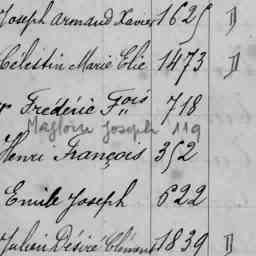 Joseph Armand Xavier 1625 D
Célestin Marie Elie 1473 D
Frédéric Fois 718
Magloire Joseph 119
Henri François 352
Emile Joseph 622
Julien Désiré Clément 1839 D